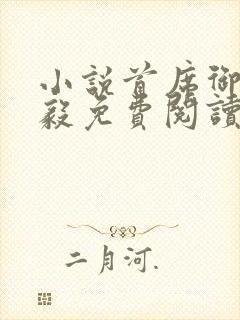 小說首席御
毅免費閱讀
二月河.